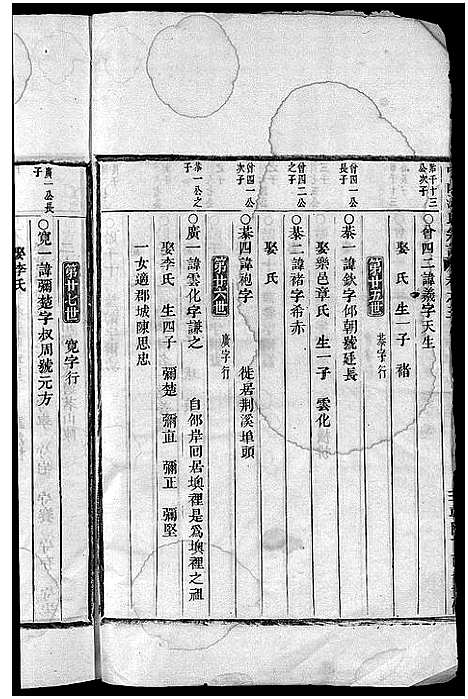 公次子
〇曾四二諱羲字天生
娶氏 生一子 褚
第廿五世 恭字行
曾四一公長子
〇恭一諱欽字仰朝號廷長
娶樂邑章氏 生一子 雲化
曾四二公之子
〇恭二諱褚字希赤
娶氏
曾四一公次子
〇恭四諱袍字 徙居荆溪埠頭
第廿六世 廣字行
恭一公之子
〇廣一諱雲化字謙之 自邰岸回居墺裡是爲墺裡之祖
娶李氏 生四子 彌楚 彌直 彌正 彌堅
一女適郡城陳思忠
第廿七世 寛字行
廣一公長子
〇寛一諱彌楚字叔周號元方
娶李氏